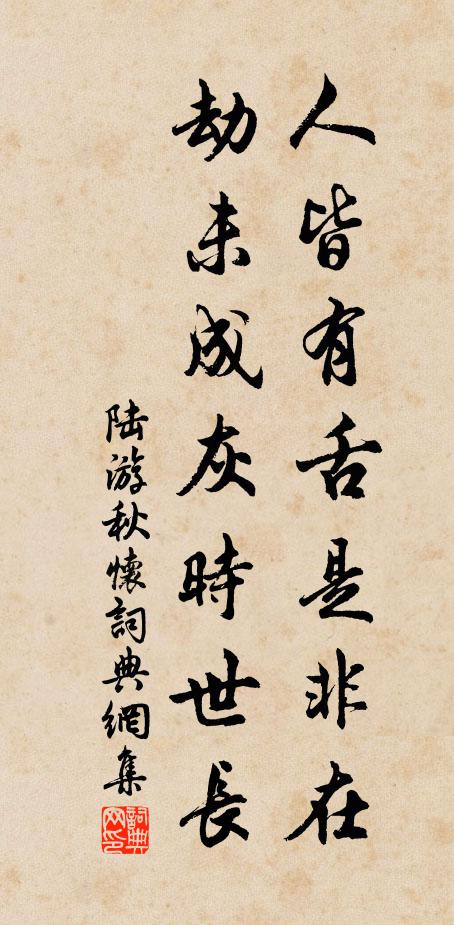 人皆有舌是非在
劫未成灰時世長
陸游秋懷詞典網集
詞典网印